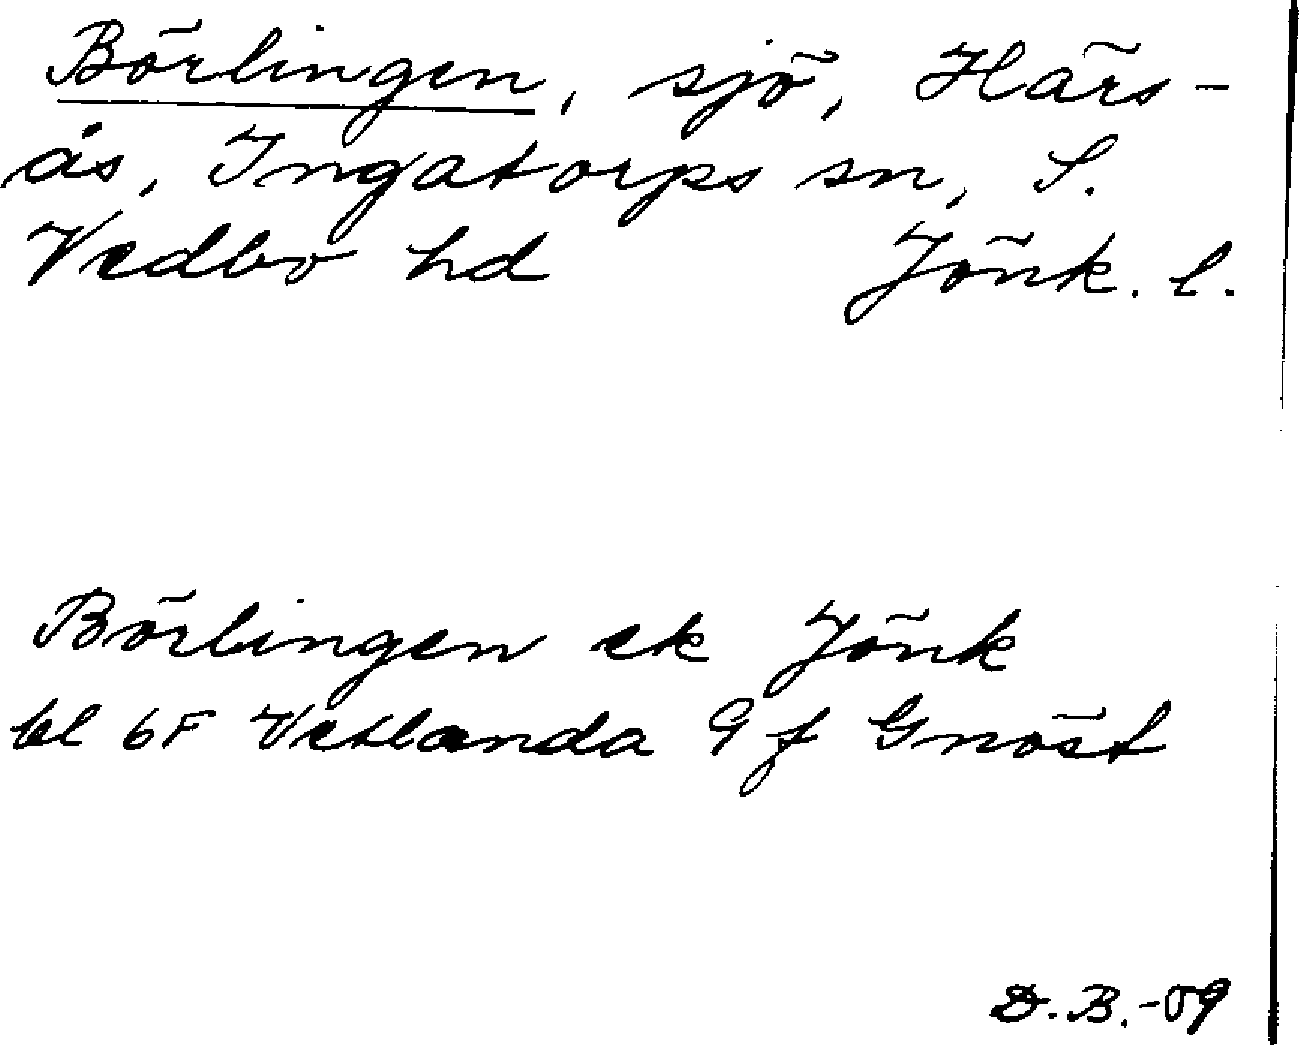 Börlingen, sjö, Härs-
ås, Ingatorps sn, S.
Vedbo hd Jönk. l.
Börlingen ek Jönk
bl 6F Vetlanda 9f Gnöst
D.B.-09